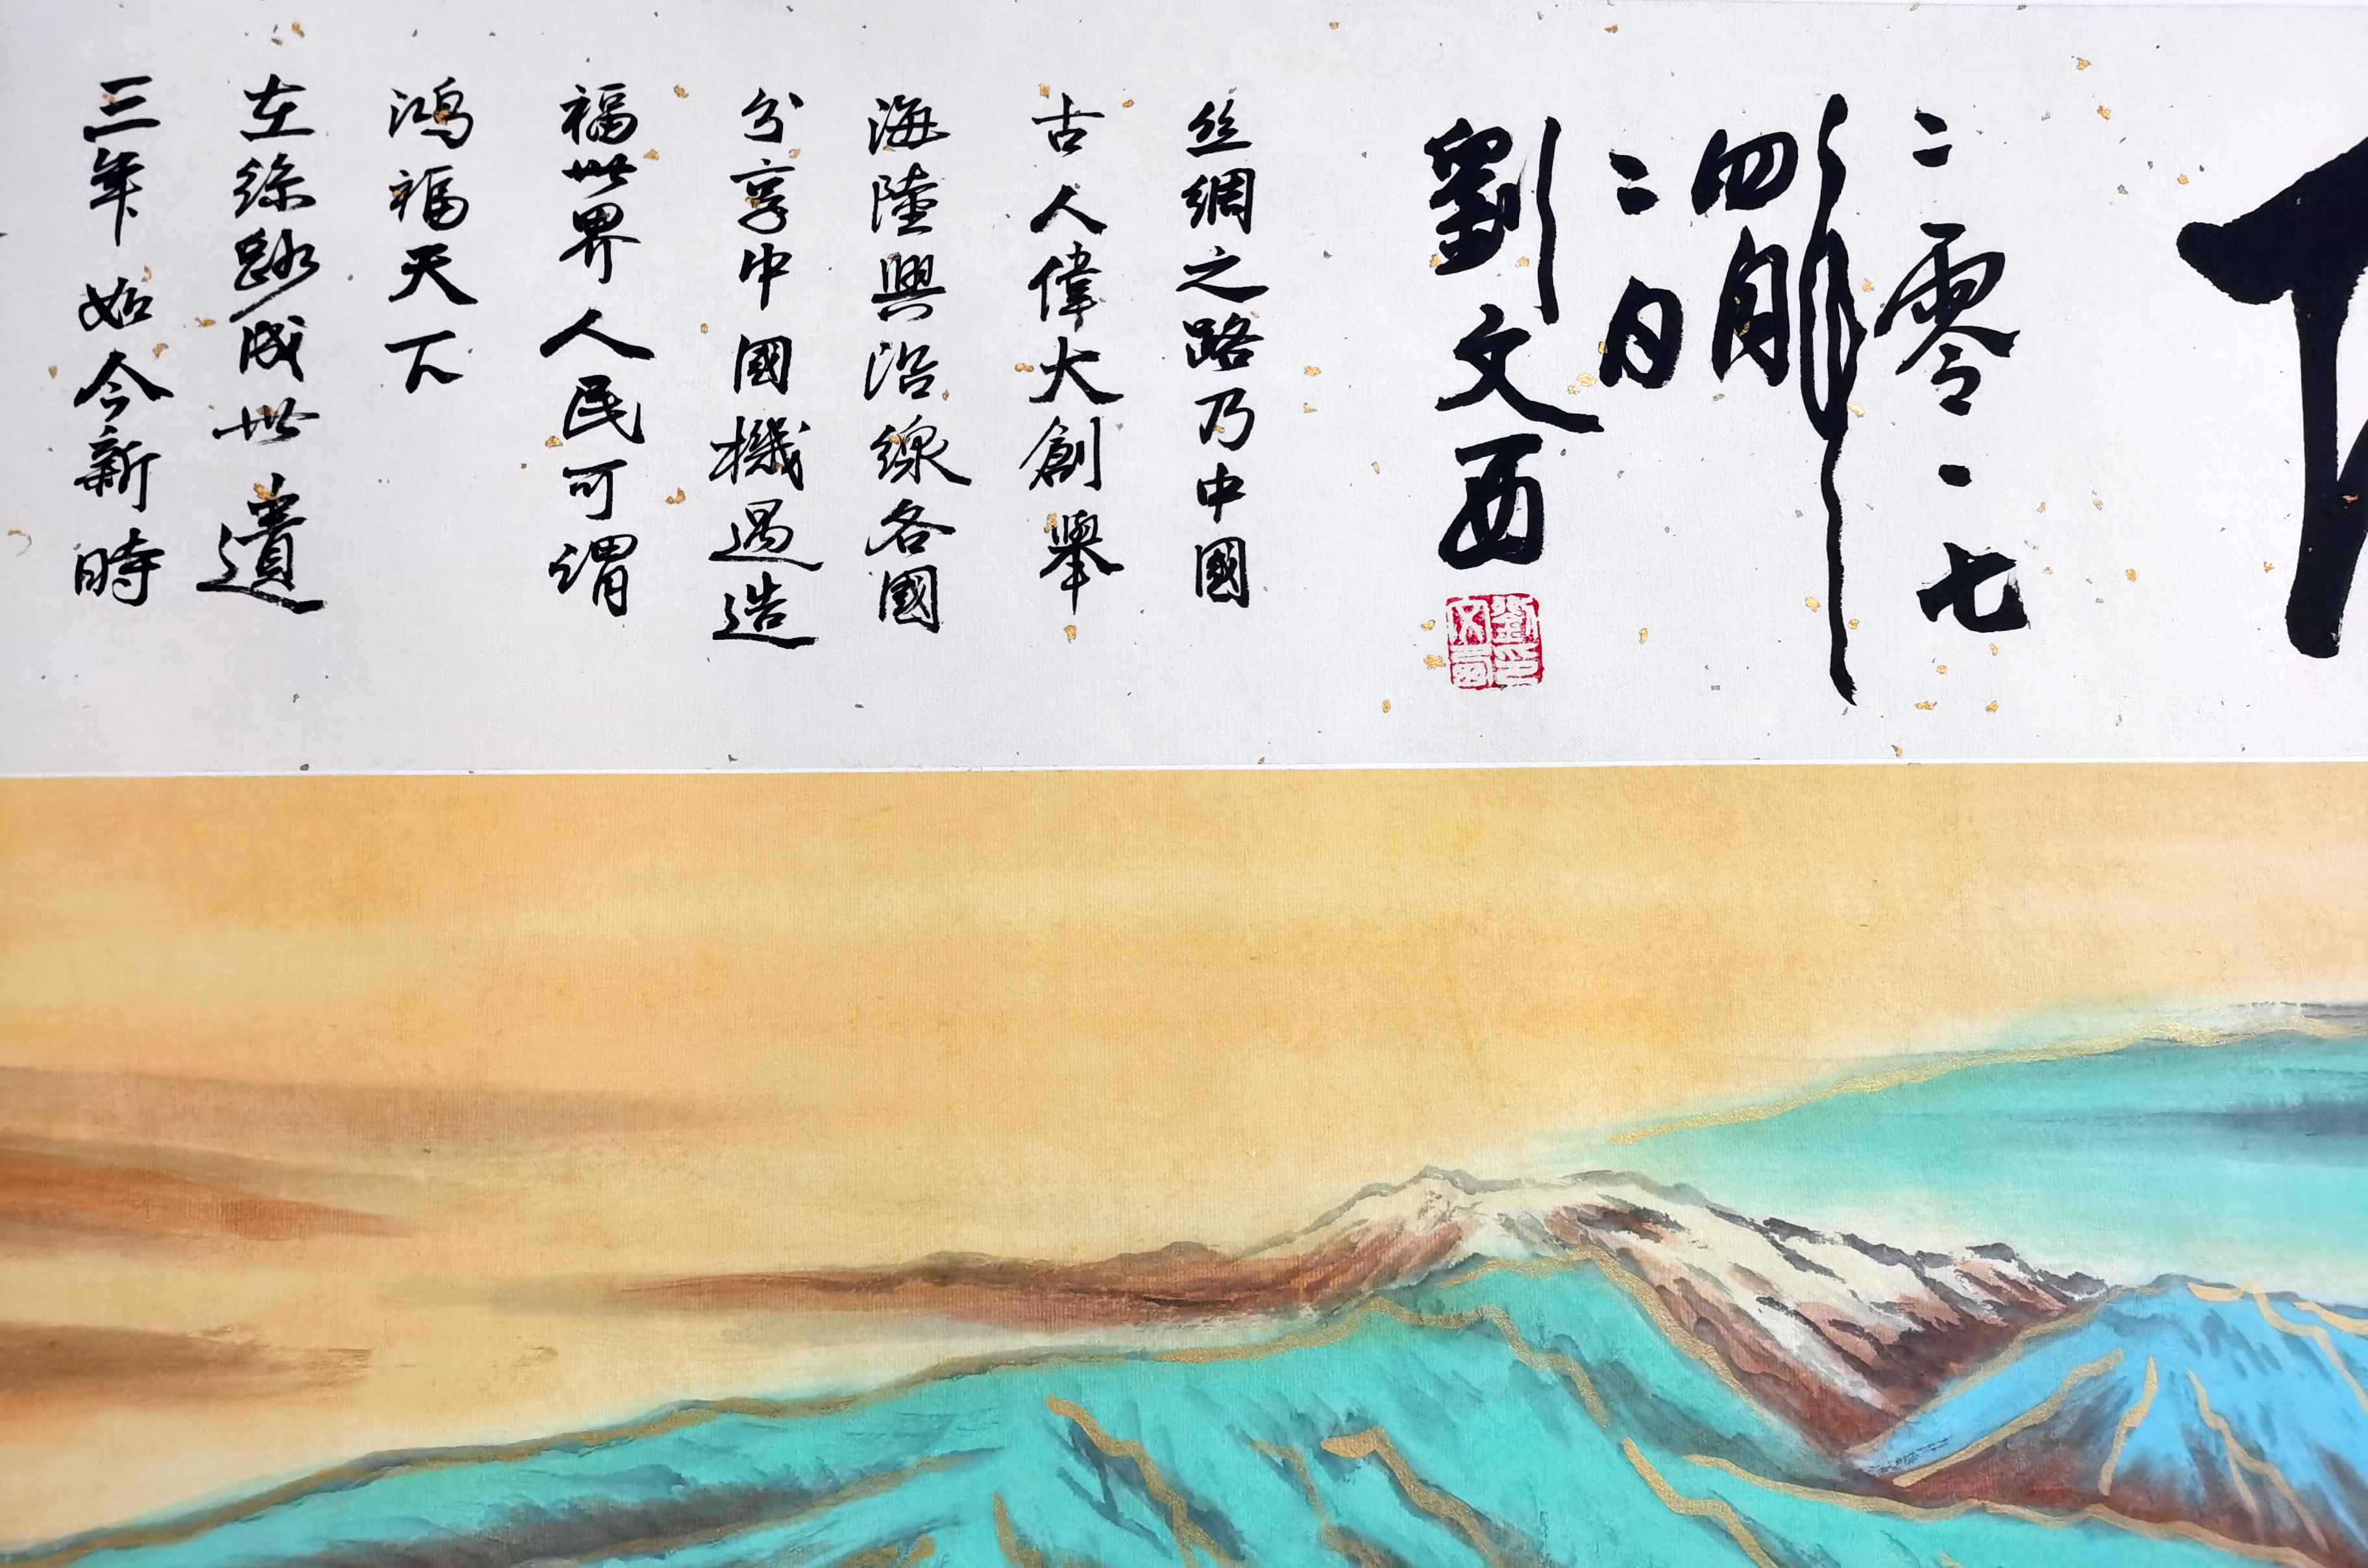 二零一七
年
四月
二日
劉文西
劉印文西
丝綢之路乃中國
古人偉大創舉
海陸興沿線各國
分享中國機遇造
福世界人民可謂
鸿福天下
在絲路成世遺
三年如今新時